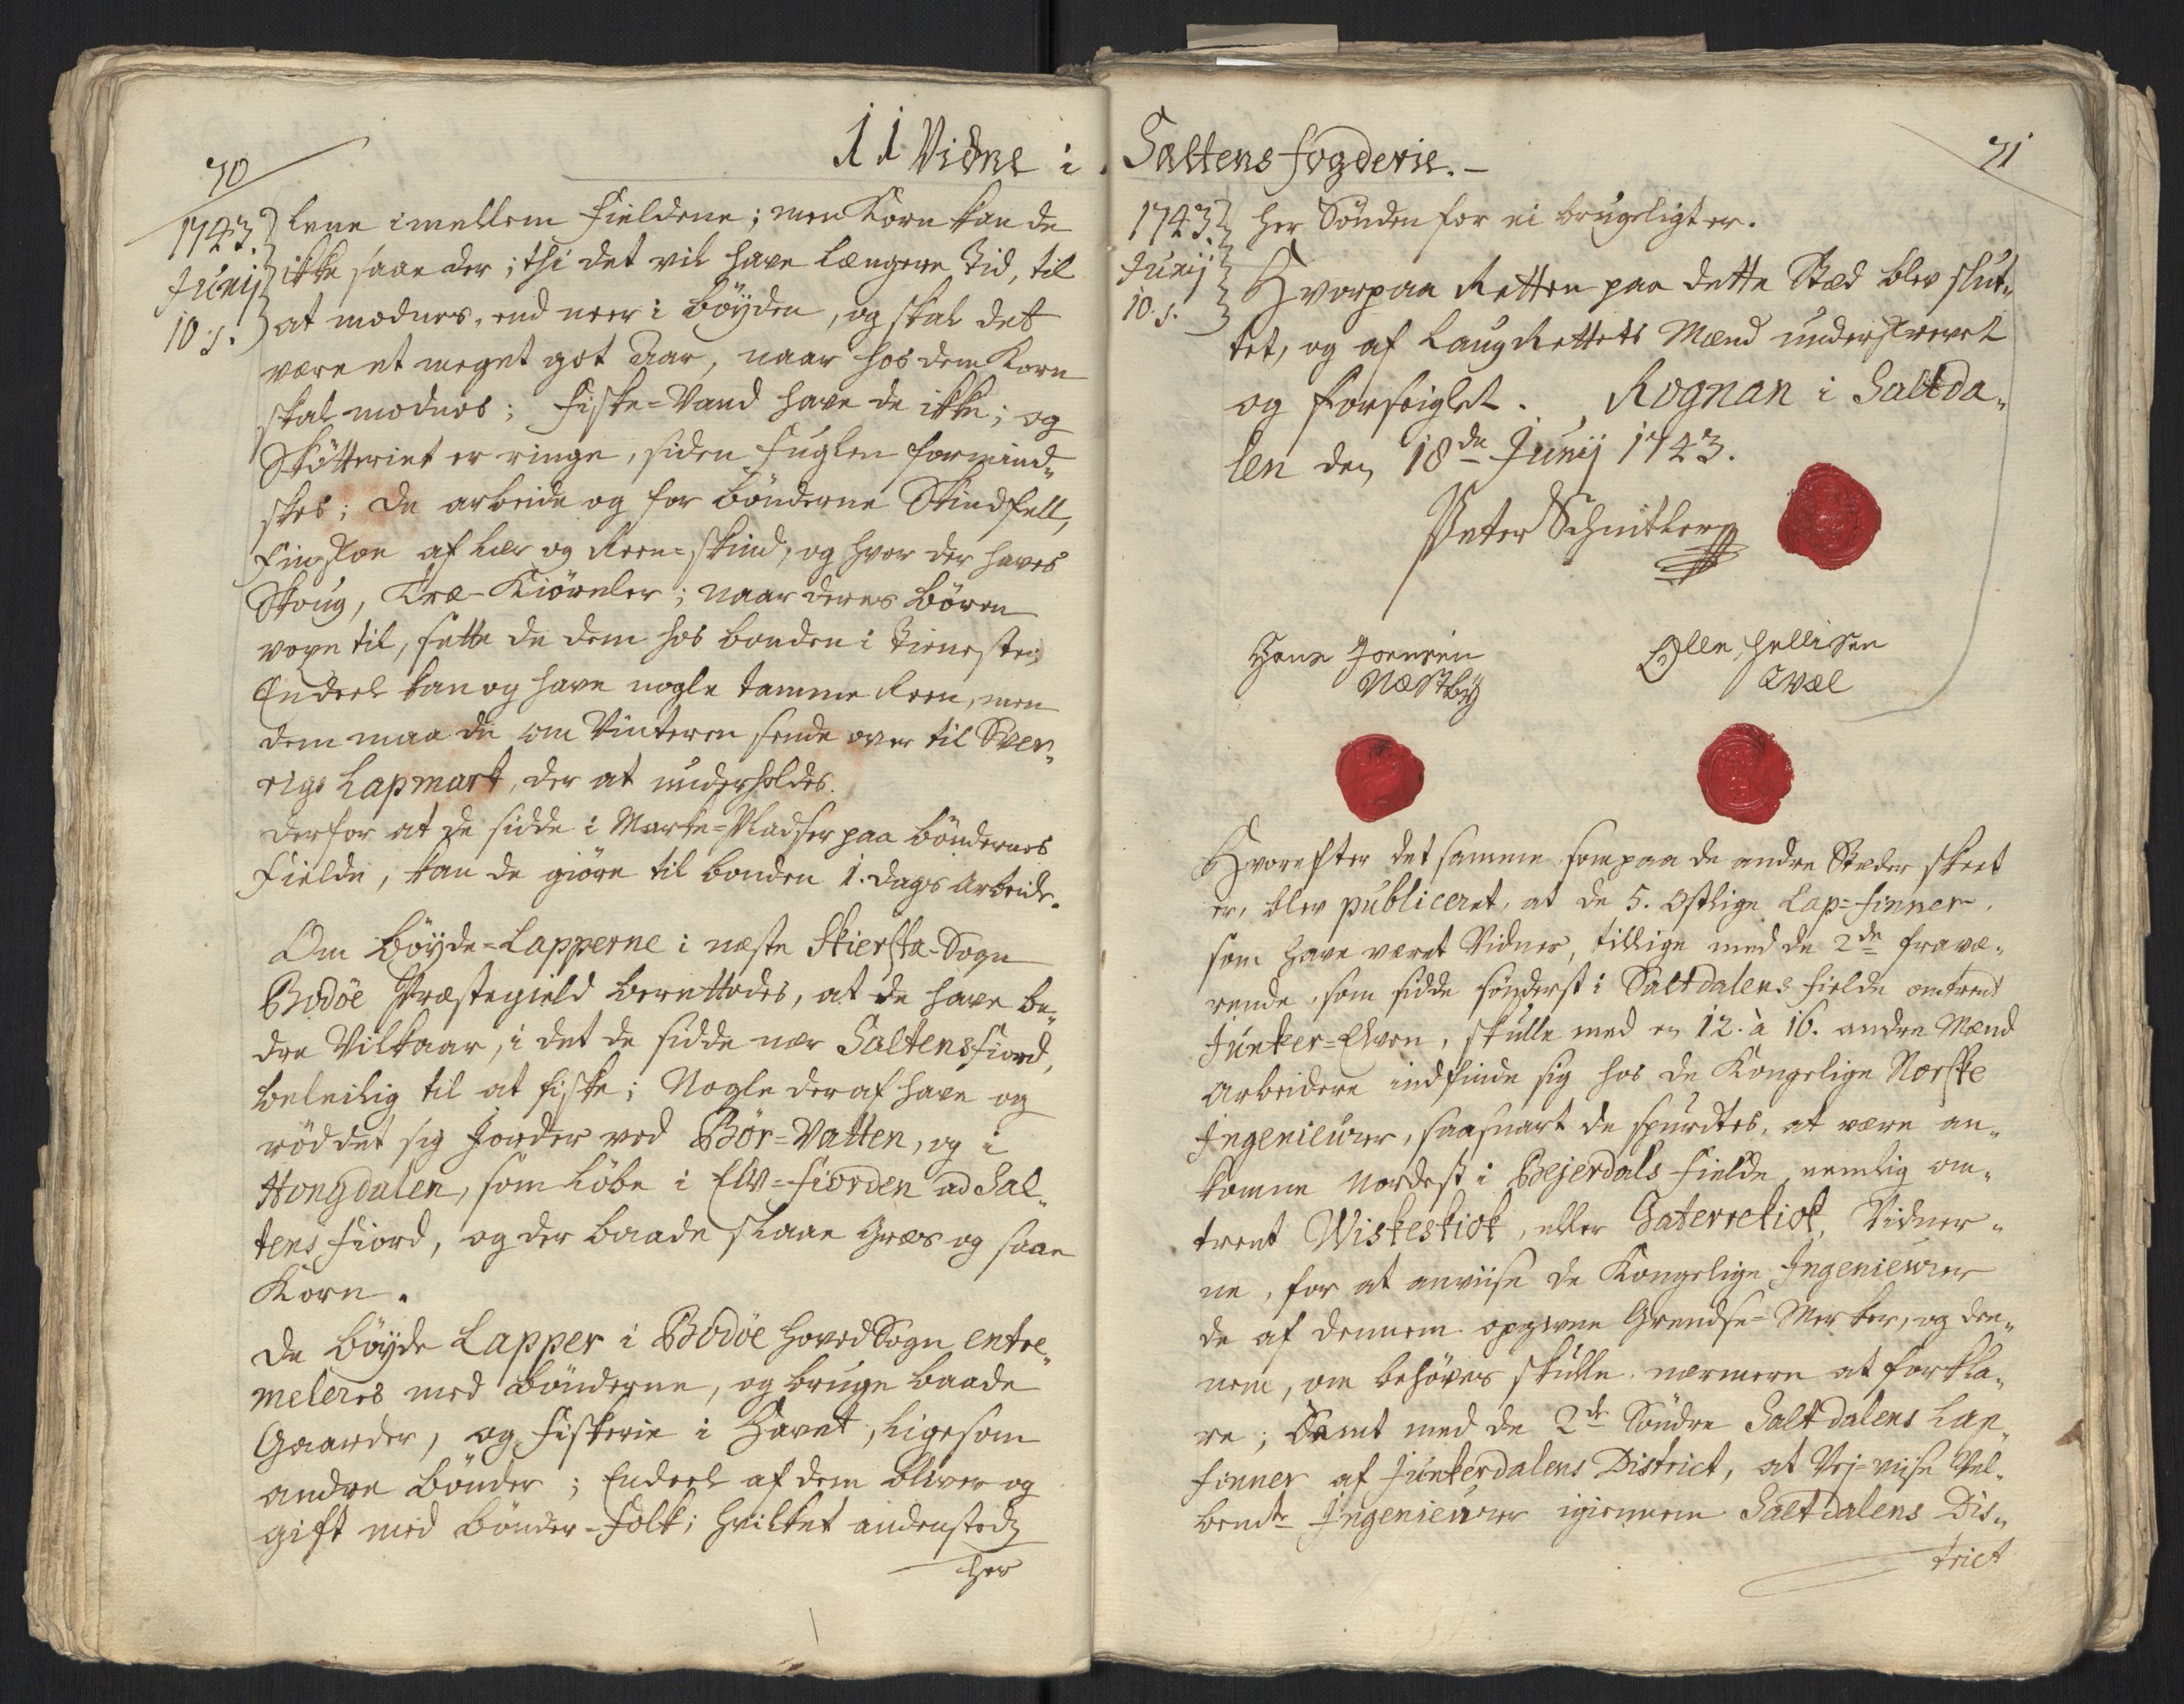 70
11 Vidne i
1743.
Junij
10. s.
lene imellem Fieldene; men Korn kan de
ikke saae der; thi det vil have længere Tid, til
at modnes, end neer i bøyden, og skal det
være et meget got Aar, naar hos dem Korn
skal modnes; Fiske=Vand have de ikke; og
Skötteriet er ringe, siden Fuglen formind„
skes; De arbeide og for bönderne Skindfell,
Finskoe af Lær og Reen=skind, og hvor der haves
Skoug, Træ-Kiörreler; naar deres børen
voxe til, sette de dem hos bonden i Tieneste;
Endeel kan og have nogle tamme Reen, men
dem maa de om Vinteren sende over til Sver„
rigs Lapmark, der at underholdes.
Derfor at de sidde i Marke=Pladser paa böndernes
Fielde, kan de giöre til bonden 1. dags Arbeide.
Om Böyde=Lapperne i næste Skiersta-Sogn
Bodöe Præstegield berettedes, at de have be„
dre Vilkaar, i det de sidde nær Saltens fiord,
beleilig til at fiske; Nogle deraf have og
röddet sig Jorder ved Bör=Vatten, og i
Hongdalen, som löbe i Elv=fiorden ad Sal„
tens Fiord, og der baade slaae Græs og saae
Korn.
De böyde Lapper i Bodöe Hoved Sogn entre„
meleres med bönderne, og bruge baade
Gaarder, og Fiskerie i Havet, ligesom
andre bönder; Endeel af dem bliver og
gift med bönder=Folk; hvilket andenstedz
her
Saltens fogderie.-
71
1743.
Junij
10. s.
her Sönden for ei brugeligt er.
Hvorpaa Retten paa dette Stæd blev slut„
tet, og af LaugRettets Mænd underskrevet
og forseiglet. Rognan i Saltda„
len den 18de Junij 1743.
Peter Schnitler
Hans Joensen
Næstby
Olle Hellisen
Qvæl
Hvorefter det samme som paa de andre Stæder skeet
er, blev publiceret, at de 5. Østlige Lap=Finner.
som have været Vidner, tillige med de 2de fravæ„
rende, som sidde sönderst i Saltdalens Fielde omtrent
Junker=Elven, skulle med en 12. à 16. andre Mænd
Arbeidere indfinde sig hos de Kongelige Norske
Ingenieurer, saasnart de spurdtes, at være an„
komne nordest i Bejerdals Fielde nemlig om„
trent Wiskeskiok, eller Gaterrekiok, Vidner„
ne, for at anviise de Kongelige Ingenieurer
de af dennem opgivne Grendse=Merker, og den„
nem, om behöves skulle nærmere at forkla„
re; Samt med de 2de Söndre Saltdalens Lap„
finner af Junkerdalens District, at Vej=viise Vel„
bemte Ingenieurer igiennem Saltdalens Dis„
trict